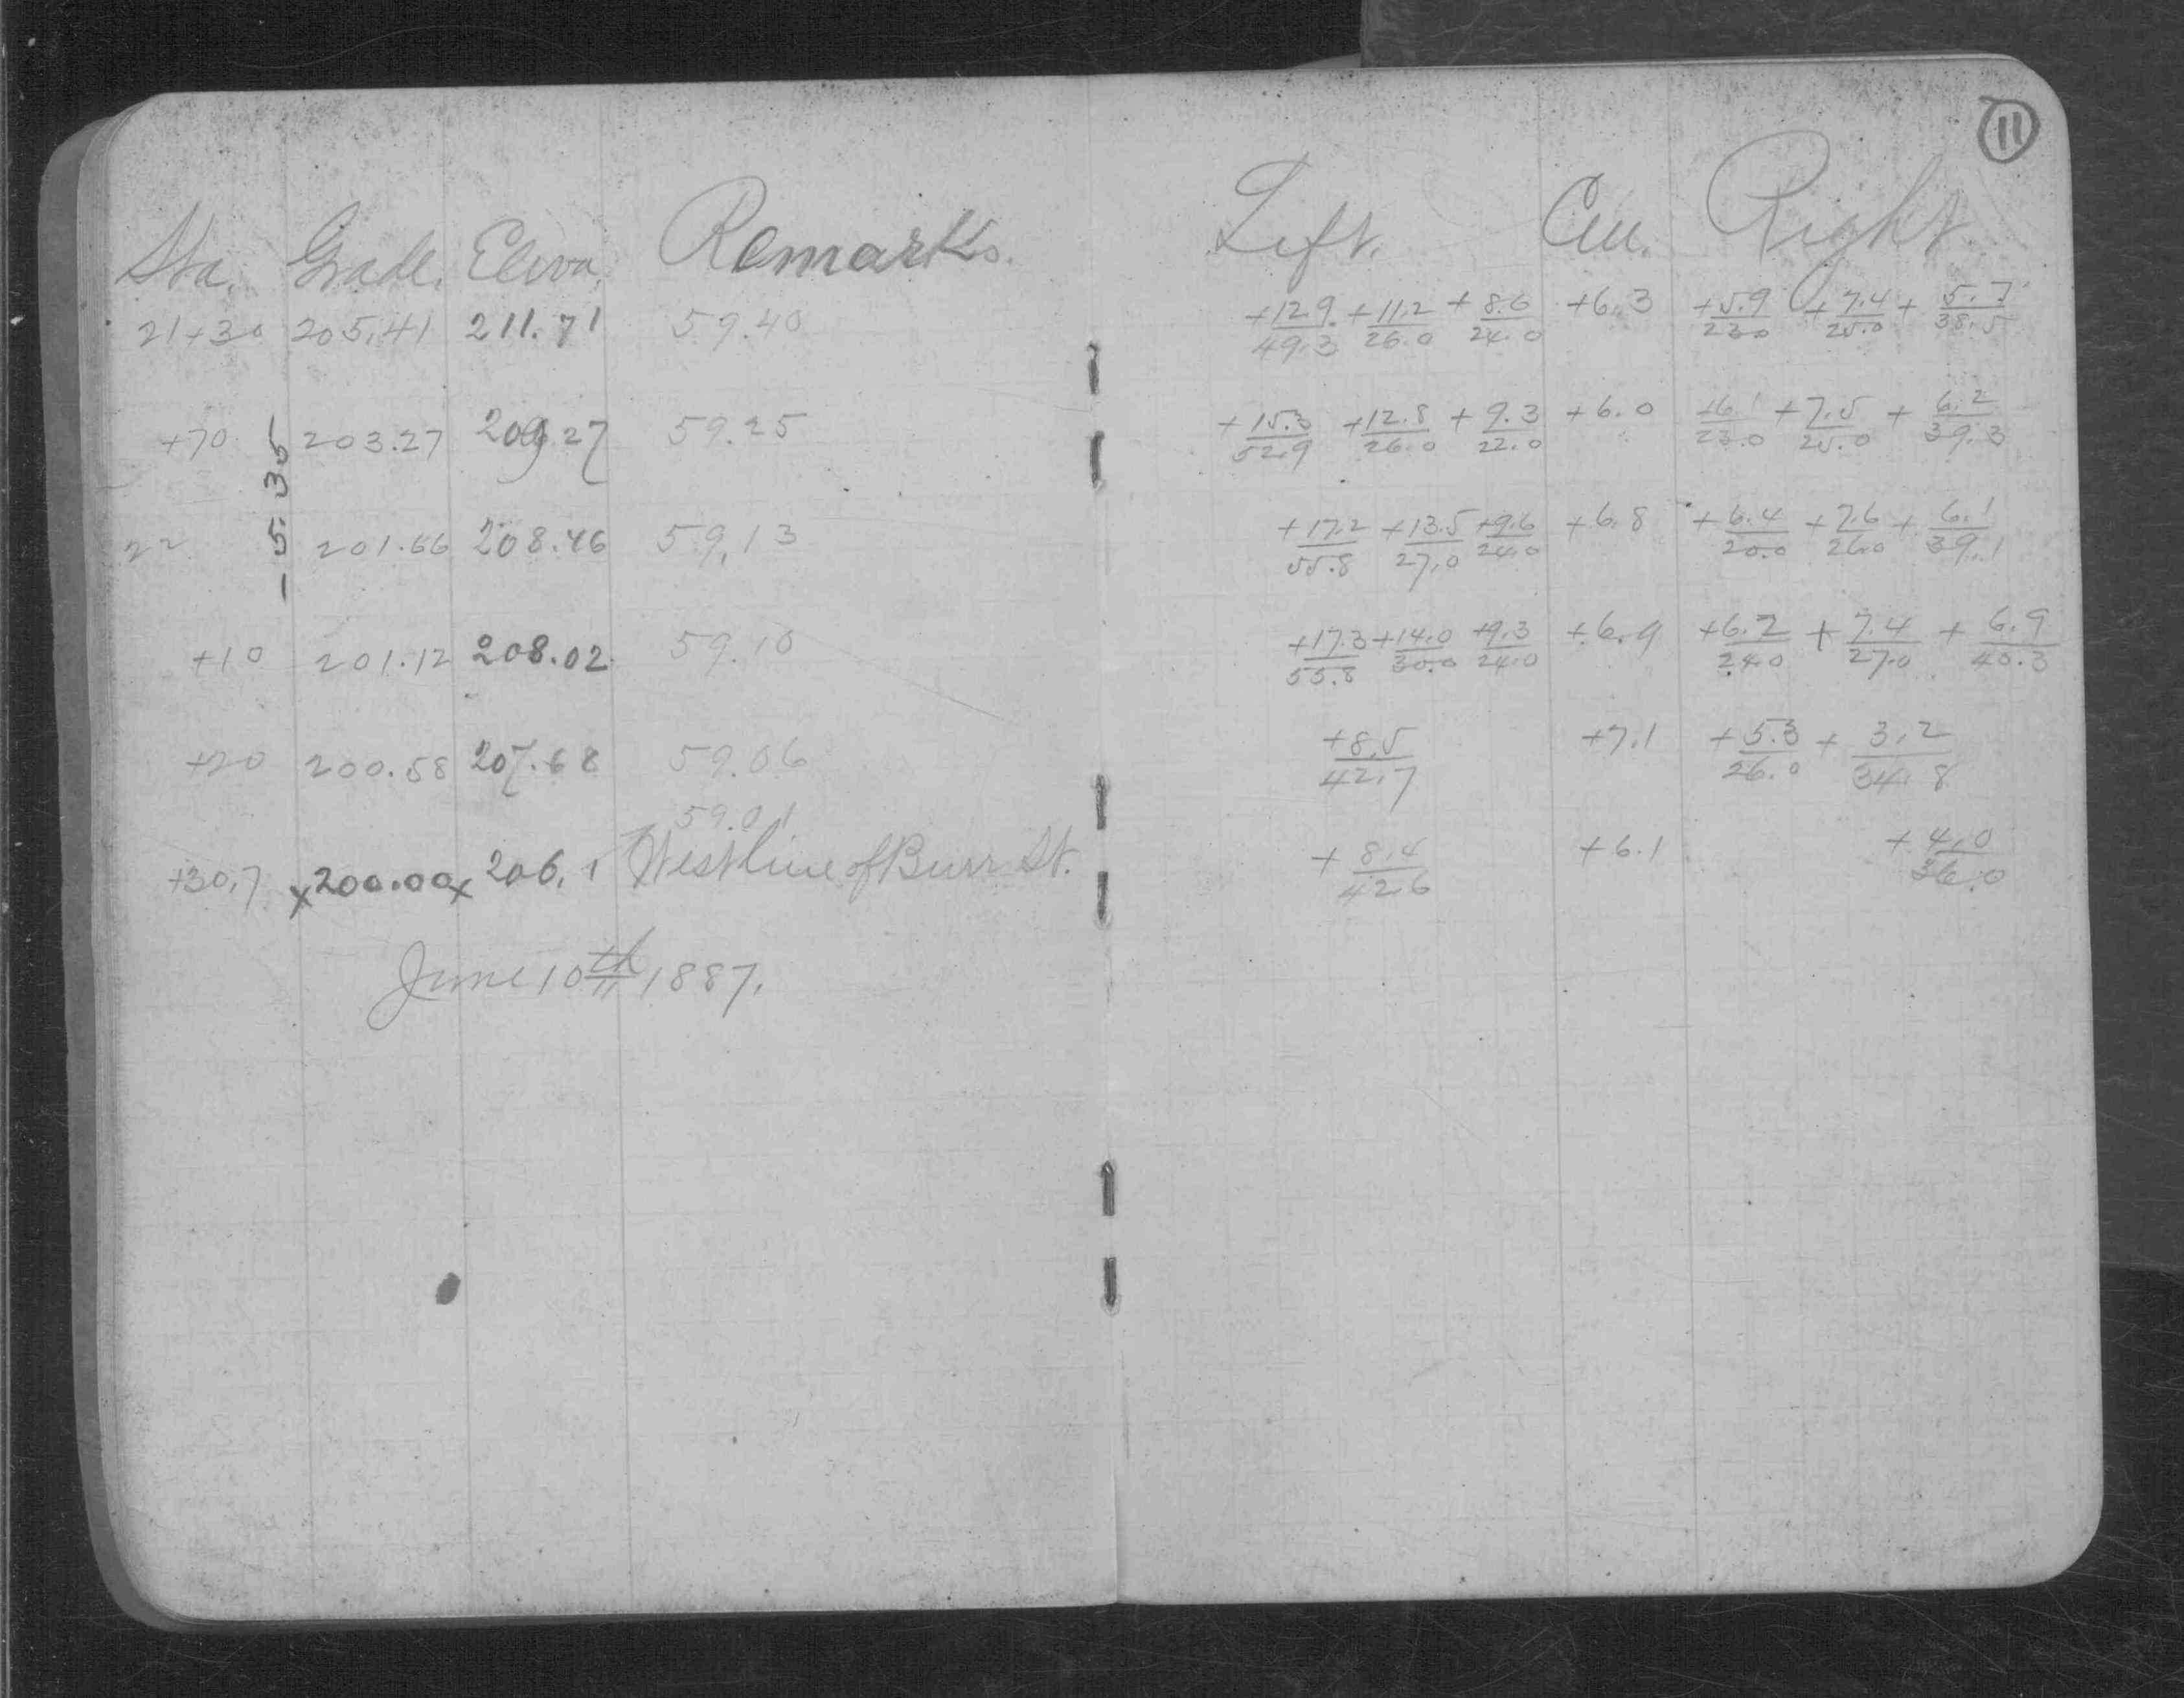 11
Sta. Grade. Eleva. Remarks. Left. Cen. Right.
21+30 205.41 211.71 59.40 +12.9/49.3 +11.2/26.0 +8.6/24.0 +6.3 +5.9/23.0 +7.4/25.0 +5.7/38.5
+70 203.27 209.27 59.25 +15.3/52.9 +12.8/26.0 +9.3/22.0 +6.0 +6.1/23.0 +7.5/25.0 +6.2/39.3
-5.35
22 201.66 208.46 59.13 +17.2/55.8 +13.5/27.0 +9.6/24.0 +6.8 +6.4/20.0 +7.6/26.0 +6.1/39.1
+10 201.12 208.02 59.10 +17.3/55.8 +14.0/30.0 +9.3/24.0 +6.9 +6.2/24.0 +7.4/27.0 +6.9/40.3
+20 200.58 207.68 59.06 +8.5/42.7 +7.1 +5.3/26.0 +3.2/34.8
59.01
+30.7 x200.00x 206.1 West line of Burr St. +8.4/42.6 +6.1 +4.0/36.0
June 10th 1887.